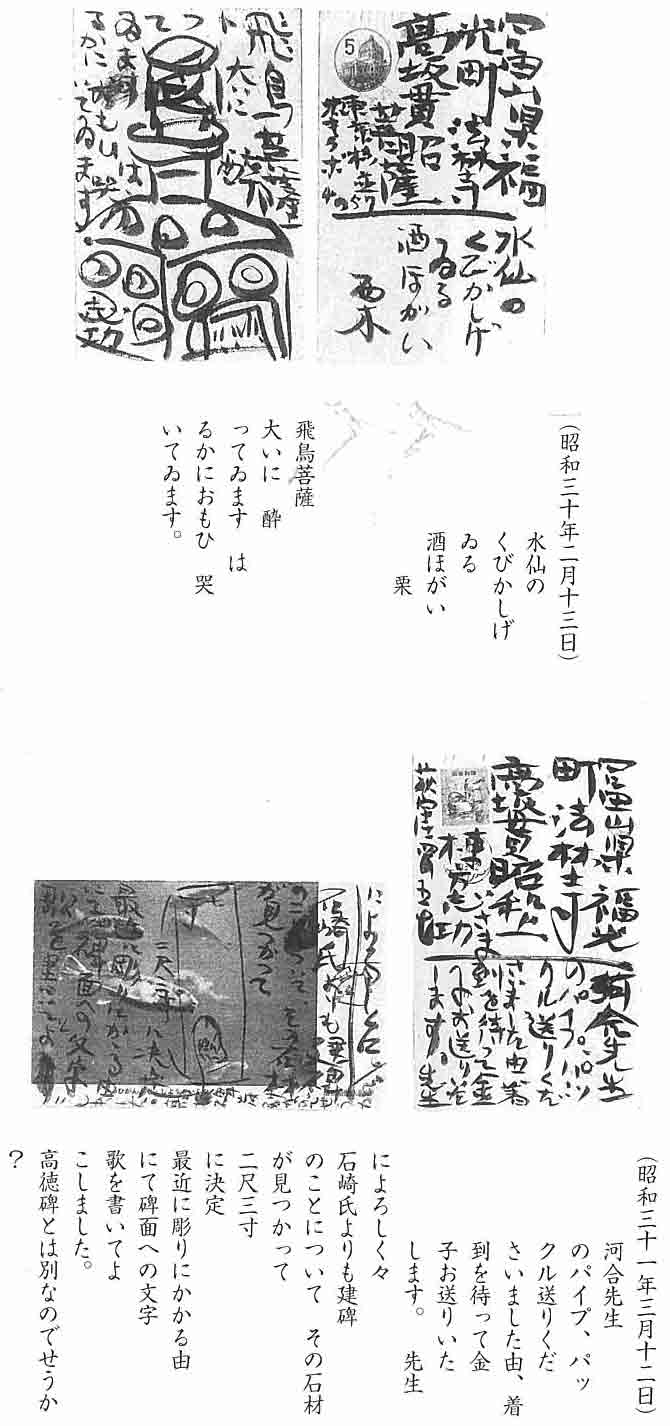 富山県福
光町 法林寺
高坂貫昭
菩薩
5
水仙の
くびかしげ
ゐる
酒ほがい
飛鳥菩薩
大いに 酔
って
ゐます は
るかにおもひ 哭
いてゐます。
(昭和三十年二月十三日)
水仙の
くびかしげ
ゐる
酒ほがい
栗
飛鳥菩薩
大いに 酔
ってゐます は
るかにおもひ 哭
いてゐます。
富山県福光
町法林寺
高坂貫昭
棟方志功
河合先生
のパイプ、パッ
クル送りくだ
さいました由、着
到を待って金
子お送りいた
します。先生
によろしく々
石崎氏よりも建碑
のことについて その石材
が見つかって
二尺三寸
に決定
最近に彫りにかかる由
にて碑面への文字
歌を書いてよ
(昭和三十一年三月十二日)
河合先生
のパイプ、パッ
クル送りくだ
さいました由、着
到を待って金
子お送りいた
します。 先生
によろしく々
石崎氏よりも建碑
のことについて その石材
が見つかって
二尺三寸
に決定
最近に彫りにかかる由
にて碑面への文字
歌を書いてよ
こしました。
高徳碑とは別なのでせうか
?